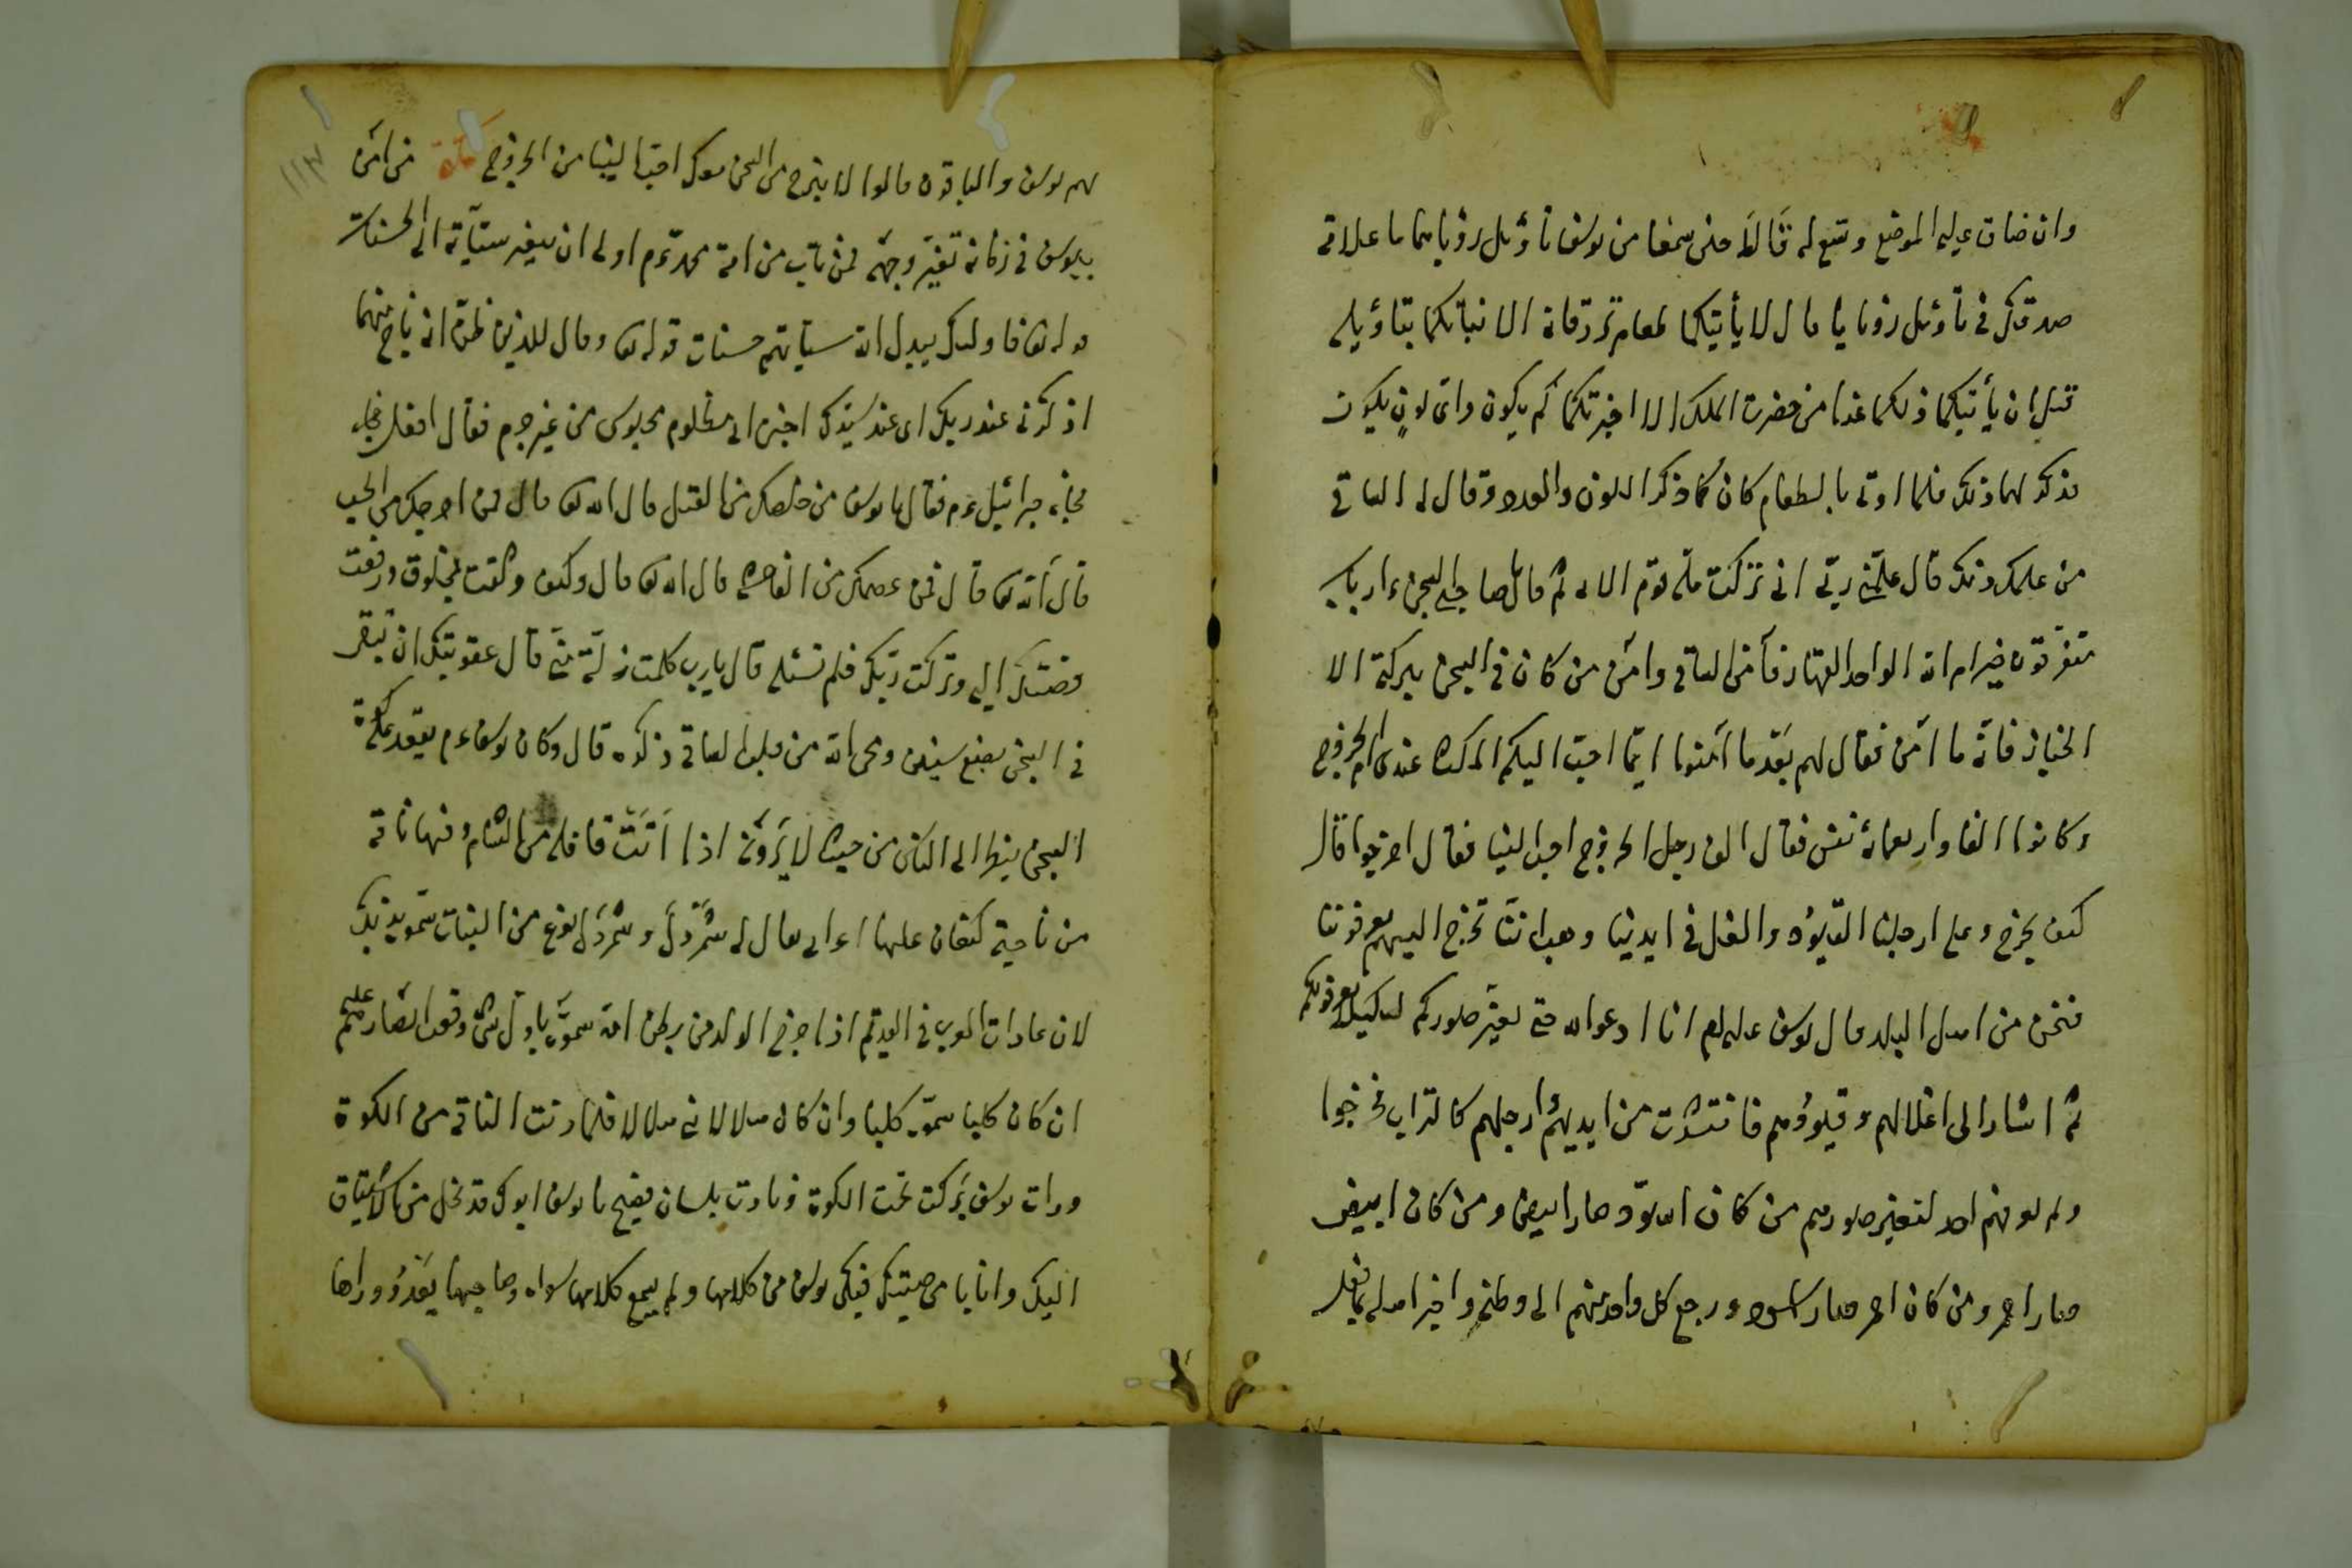 وان ضاق عليه الموضع وسّع له قَالَا حين سمعا من يوسف تأويل رؤياهما ما علامة
صدقك في تأويل رؤيانا قال لا يأتيكما طعام ترزقانه الا نبأتكما بتأويله
قبل ان يأتيكما ذلكما غدا من حضرت الملك الا اخبرتكما كم يكون واىّ لونٍ يكون
فذكر لهما ذلك فلما اوتى بالطعام كان كما ذكر اللون والعدد وقال له الساقى
من علمك ذلك قال علّمنى ربّى انى تركت ملة قوم الاية ثم قال يا صاحبى السجن ءارباب
متفرّقون خير ام الله الواحد القهار فآمن الساقى وامن من كان فى السجن ببركته الا
الخباز فانّه ما امن فقال لهم بعد ما آمنوا ايّما احبّ اليكم المكث عندى ام الخروج
وكانوا الفا واربعمائة نفس فقال الف رجل الخروج احب الينا فقال اخرجوا قالوا
كيف نخرج وعلى ارجلنا القيود والغل فى ايدينا وهب اننّا نخرج اليهم يعرفوننا
فنحن من اهل البلد قال يوسف عليه السلام انا ادعوا الله حتى يغيّر صوركم لكيلا يعرفونكم
ثم اشار الى اغلالهم وقيودهم فانتثرت من ايديهم وارجلهم كالتراب فخرجوا
ولم يعرفهم احد لتغير صورهم من كان اسود صار ابيض ومن كان ابيض
صار احمر ومن كان احمر صار اسود ورجع كل واحد منهم الى وطنه واخبر اهله بما فعل
بهم يوسف والباقون قالوا لا نخرج من السجن معك احب الينا من الخروج نكتة من امن
بيوسف فى زمانه تغيّر وجهه فمن تاب من امة محمد ءم اولى ان يغير سيّآته الى الحسنات
قوله تعالى فاولئك يبدل الله سيآتهم حسنات قوله تعالى وقال للذى ظنّ انه ناج منهما
اذكرنى عند ربك اى عند سيّدك اخبره انى مظلوم محبوس من غير جرم فقال افعل فجاء
فجاء جبرائيل ءم فقال يا يوسف من خلصك من القتل قال الله تعالى قال فمن اخرجك من الجب
قال الله تعالى قال فمن عصمك من الفاحشة قال الله تعالى قال وكيف وثقت بمخلوق ورفعت
قصّتك اليه وتركت ربّك فلم تسئله قال يا رب كلمت زلّة منّى قال عقوبتك ان تبقى
فى السجن بضع سنين ومحى الله من قلب الساقى ذكره قال وكان يوسف ءم يقعد على كوة
السجن ينظر الى الناس من حيث لا يَرَوْنَهُ اذا اَتَتْ قافلة من الشام وفيها ناقة
من ناحية كنعان عليها اعرابى يقال له شَمَرْدَل وشمردل نوع من النبات سموه بذلك
لان عادات العرب فى القديم اذا خرج الولد من بطن امّه سموّه باول شىء وقعت ابصارهم عليه
ان كان كلبا سموّه كلبا وان كان هلالا هلالا فلما دنت الناقة من الكوة
ورات يوسف بَرَكَت تحت الكوة ونادت بلسان فصيح يا يوسف ابوك قد نحل من الاشتياق
اليك وانا من مصيبتك فبكى يوسف من كلامها ولم يسمع كلامها سواه وصاحبها يَعْدُو وراها
١١٣